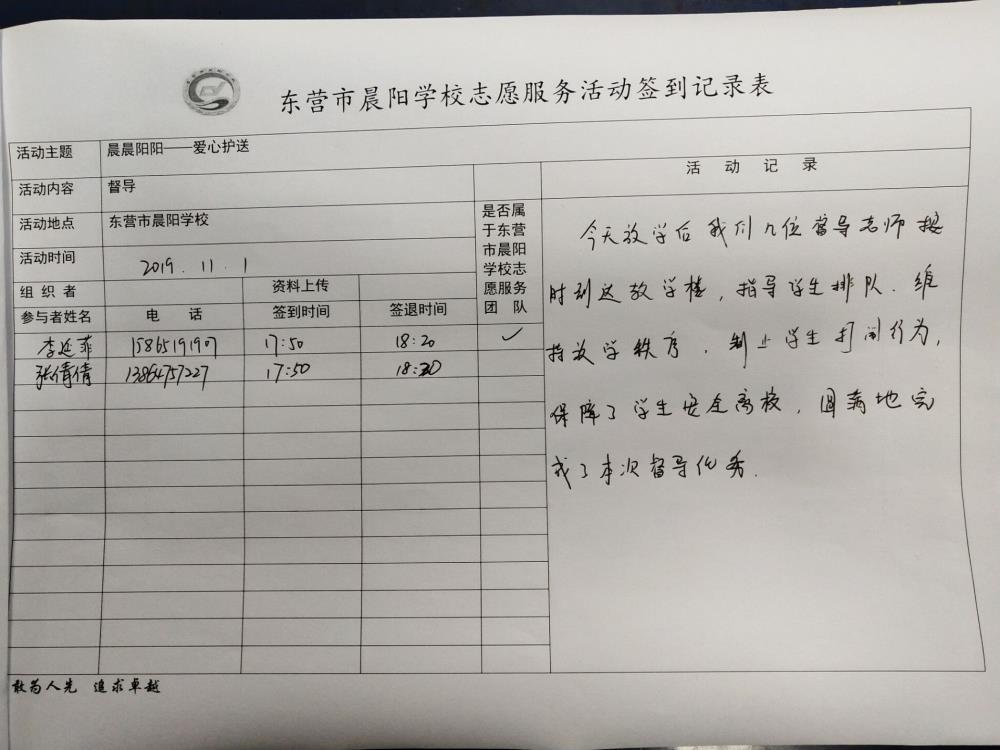 东营市晨阳学校志愿服务活动签到记录表
活动主题 晨晨阳阳——爱心护送
活动内容 督导
活动地点 东营市晨阳学校
活动时间 2019.11.1
组织者 资料上传
参与者姓名 电话 签到时间 签退时间
是否属
于东营
市晨阳
学校志
愿服务
团队
李延菲 15865191907 17:50 18:20 ✓
张倩倩 13864757227 17:50 18:20
活动记录
今天放学后我们几位督导老师按
时到达放学楼,指导学生排队、维
持放学秩序,制止学生打闹行为,
保障了学生安全离校,圆满地完
成了本次督导任务.
敢为人先 追求卓越